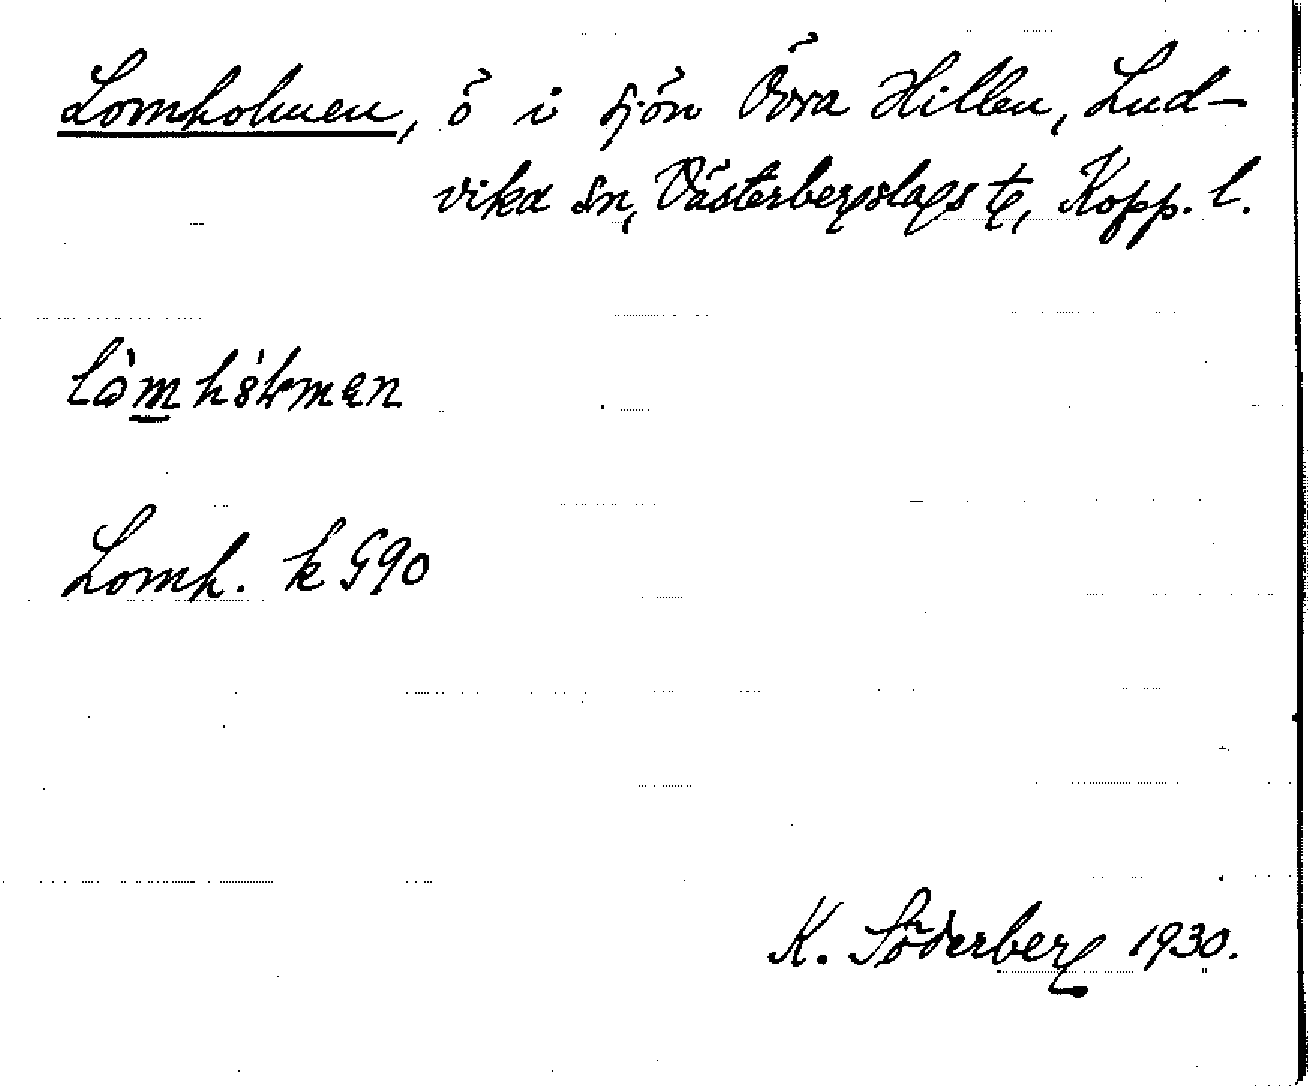 Lomholmen, ö i sjön Övra Hillen, Lud-
vika sn, Västerbergslags tg, Kopp. l.
Lomh. k G90
K. Söderberg 1930.